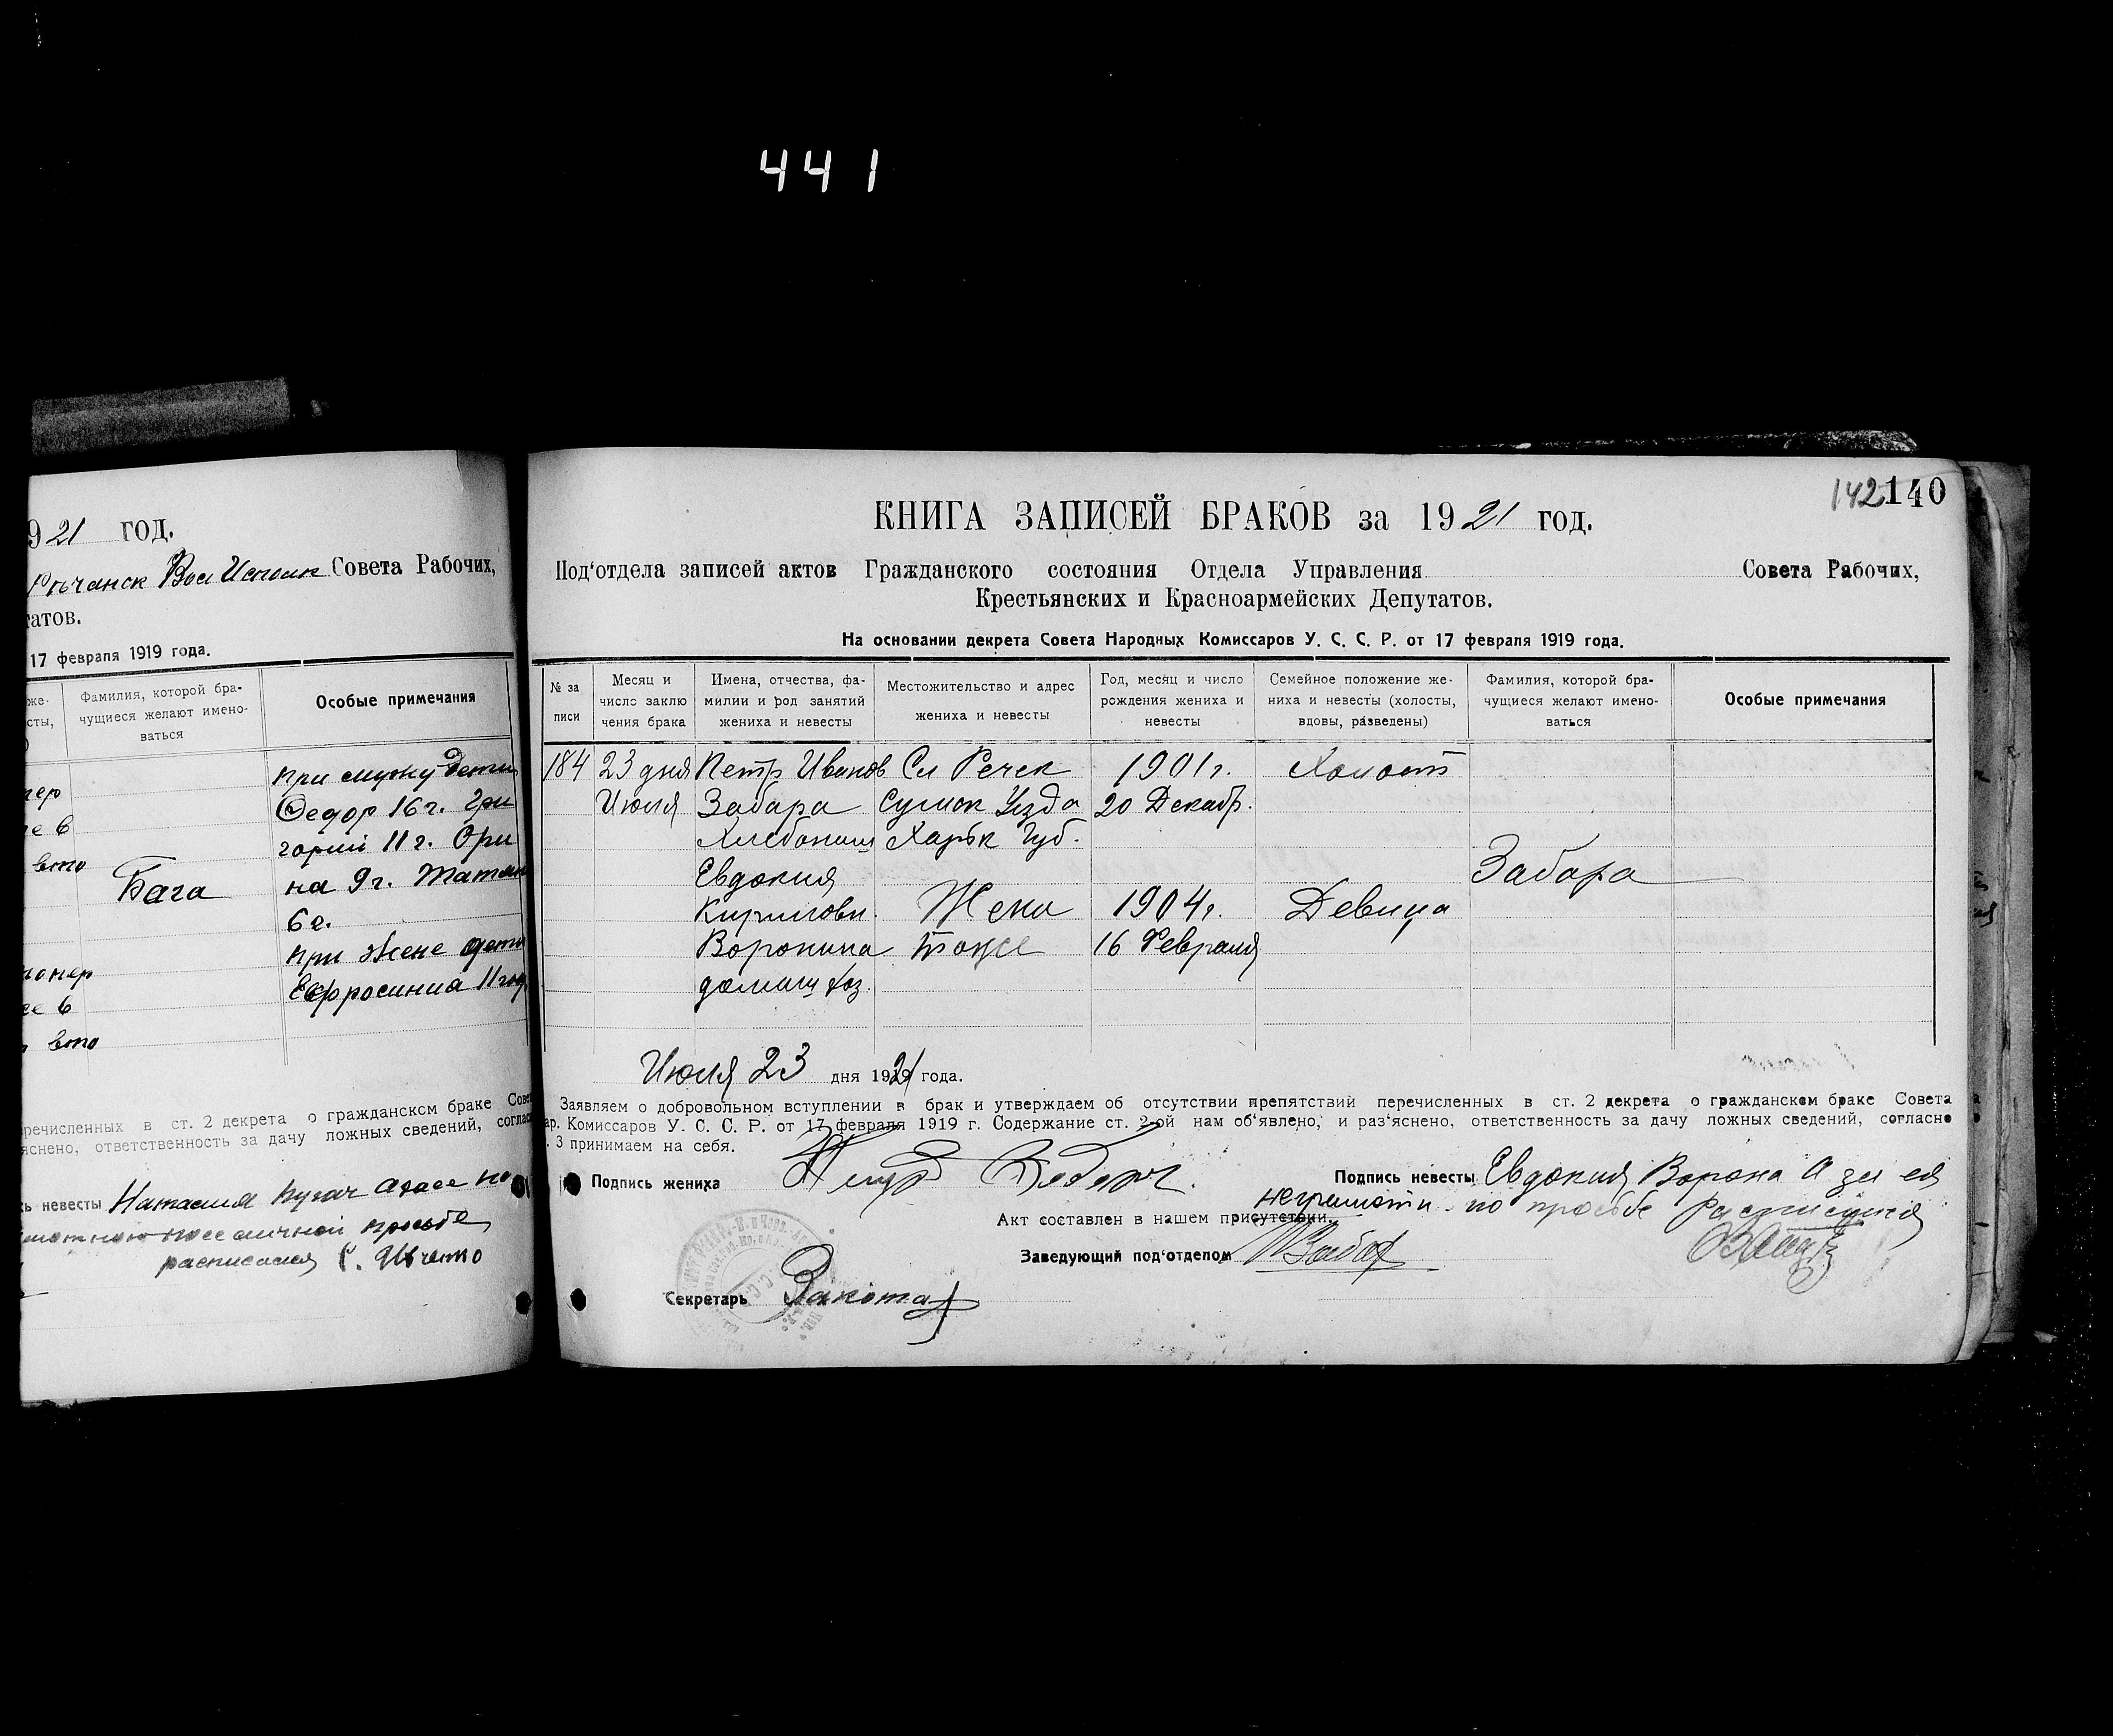 441
921 год.
Совета Рабочих,
татов.
17 февраля 1919 года.
Фамилия, которой бра-
чущиеся желают имено-
ваться
Особые примечания
при мужу дети
Федор 16 г. Гри
горий 11 г. Ори
на 9 г. Татьян
6 г.
Бага
при жене дети
Ефросиния 11 год
речисленных в ст. 2 декрета о гражданском браке Сове
яснено, ответственность за дачу ложных сведений, соглас
ь невесты Наталия
расписался
142 140
КНИГА ЗАПИСЕЙ БРАКОВ за 1921 год.
Под‘отдела записей актов Гражданского состояния Отдела Управления Совета Рабочих,
Крестьянских и Красноармейских Депутатов.
На основании декрета Совета Народных Комиссаров У. С. С. Р. от 17 февраля 1919 года.
№ за
писи
Месяц и
число заклю
чения брака
Имена, отчества, фа-
милии и род занятий
жениха и невесты
Местожительство и адрес
жениха и невесты
Год, месяц и число
рождения жениха и
невесты
Семейное положение же-
ниха и невесты (холосты,
вдовы, разведены)
Фамилия, которой бра-
чущиеся желают имено-
ваться
Особые примечания
184 23 дня Петр Иванов Сл Речек 1901 г. Холост
Июля Забара Сумск Уезда 20 Декабр.
Хлебопаш Харьк Губ.
Евдокия Забара
Кирилловн. Жена 1904 г. Девица
Воронина тоже 16 Февраля
домаш хоз.
Июля 23 дня 1921 года.
Заявляем о добровольном вступлении в брак и утверждаем об отсутствии препятствий перечисленных в ст. 2 декрета о гражданском браке Совета
ар. Комиссаров У. С. С. Р. от 17 февраля 1919 г. Содержание ст. 2-ой нам об‘явлено, и раз‘яснено, ответственность за дачу ложных сведений, согласно
. 3 принимаем на себя.
Подпись жениха Петр Забара. Подпись невесты Евдокия Ворона А за ея
неграмотн. по просьбе расписался
Акт составлен в нашем присутствии.
Заведующий под‘отделом
Секретарь Закота